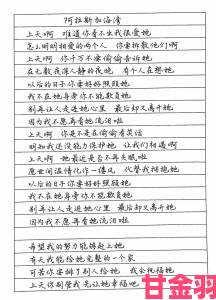 阿拉斯加海湾
上天啊 难道你看不出我很爱她
怎么明明相爱的两个人 你要拆散他们啊
上天啊 你千万不要偷偷告诉她
在无数夜深人静的夜晚 有个人在想她
以后的日子你要好好照顾她
我不在她身旁你不能欺负她
别再让人走进她心里 最后却又离开她
因为我不愿再看她流泪啦
上天啊 你是不是在偷偷看笑话
明知我还没能力保护她 让我们相遇啊
上天啊 她最近是否不再失眠啦
愿世间温情化作一缕风 代替我拥抱她
以后的日子你要好好照顾她
我不在她身旁你不能欺负她
别再让人走进她心里 最后却又离开她
因为我不愿再看她流泪啦
希望我的努力能够赶上她
有天我能给她完整的一个家
可若你安排了别人给她 我会祝福她
上天你别管我 先让她幸福吧